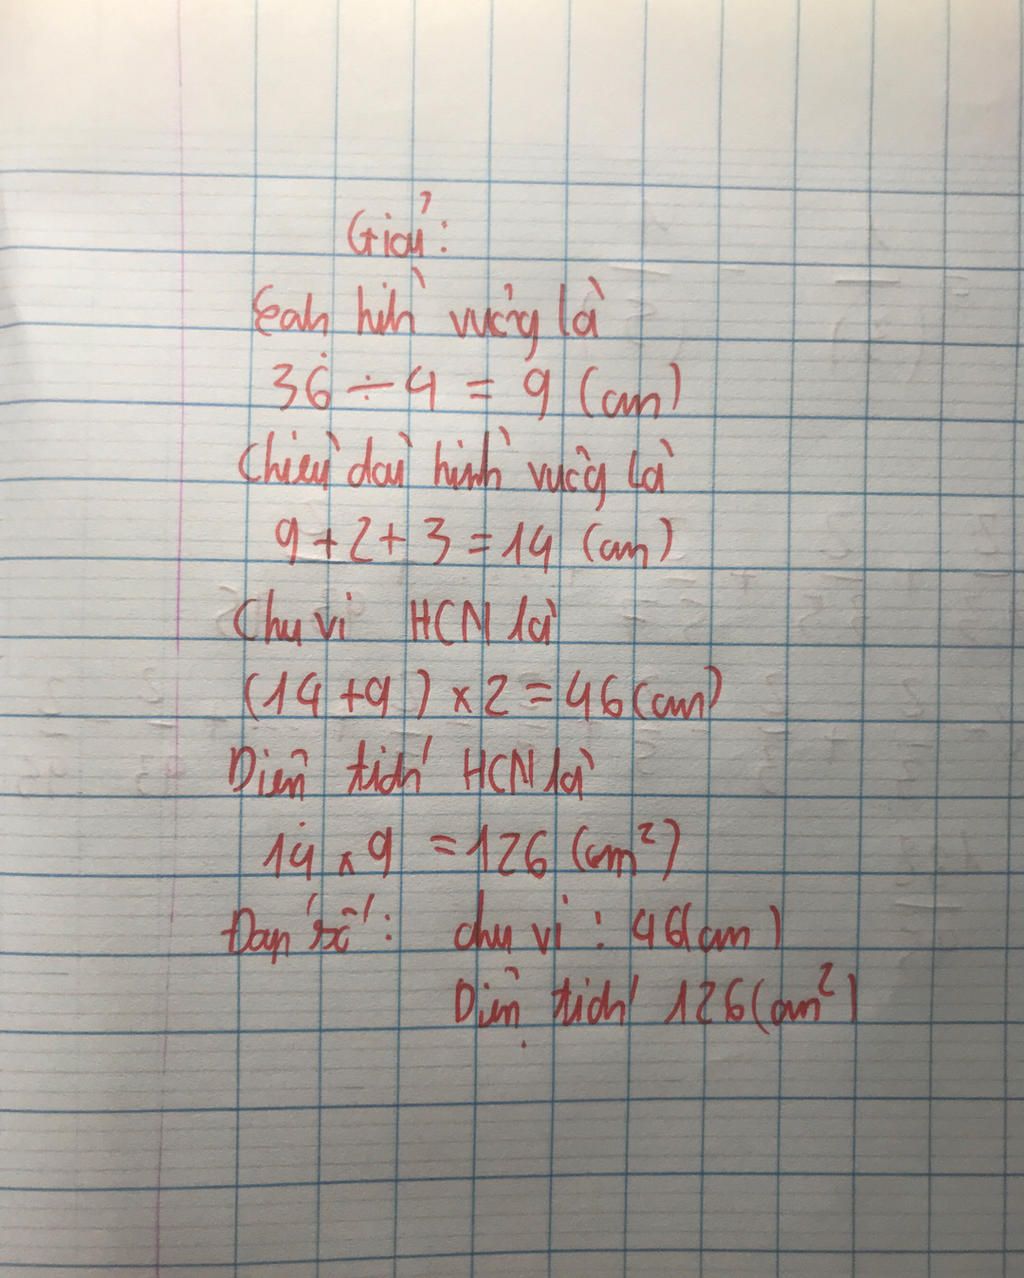 Giải:
Cạnh hình vuông là
36 ÷ 4 = 9 (cm)
Chiều dài hình vuông là
9 + 2 + 3 = 14 (cm)
Chu vi HCN là
(14 + 9) × 2 = 46 (cm)
Diện tích HCN là
14 × 9 = 126 (cm²)
Đáp số: chu vi : 46 (cm)
Diện tích 126 (cm²)